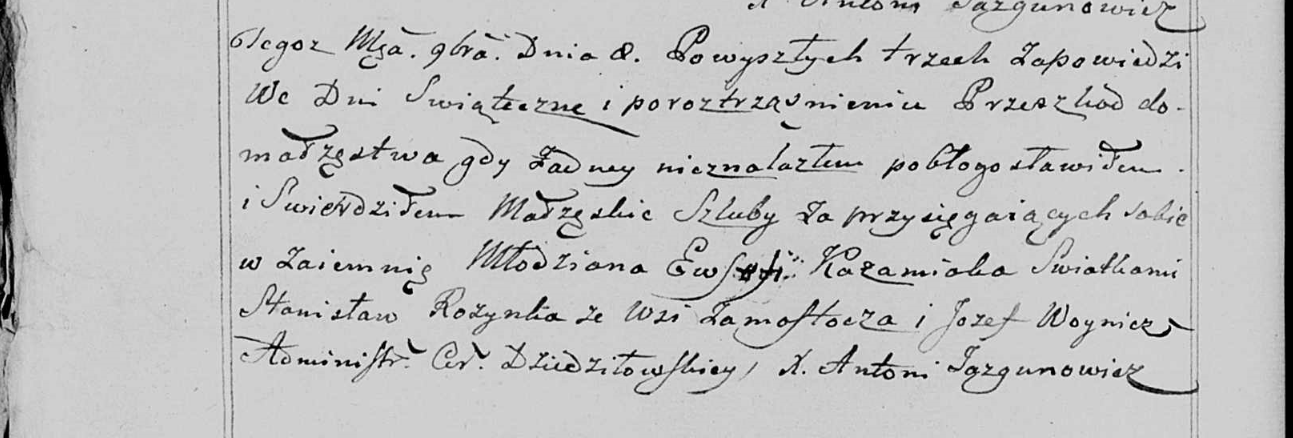 X Antoni Jazgunowicz
Tegoż Mṣa. 9bra. Dnia 8. Powyszłych trzech Zapowiedzi
We Dni Swiąteczne i poroztrząsnieniu Przeszkod do-
małzęstwa gdy Żadney nieznalazłem pobłogosławiłem.
i Swierdziłem Małzęskie Szluby Za przysięgaiących sobie
w Zaiemnię Młodziana Kazamiaka Swiatkami
Stanisław Rozynka ze Wsi Zamostocza i Jozef Woynicz
Administr. Cer. Dziedziłowskiey, X. Antoni Jazgunowicz